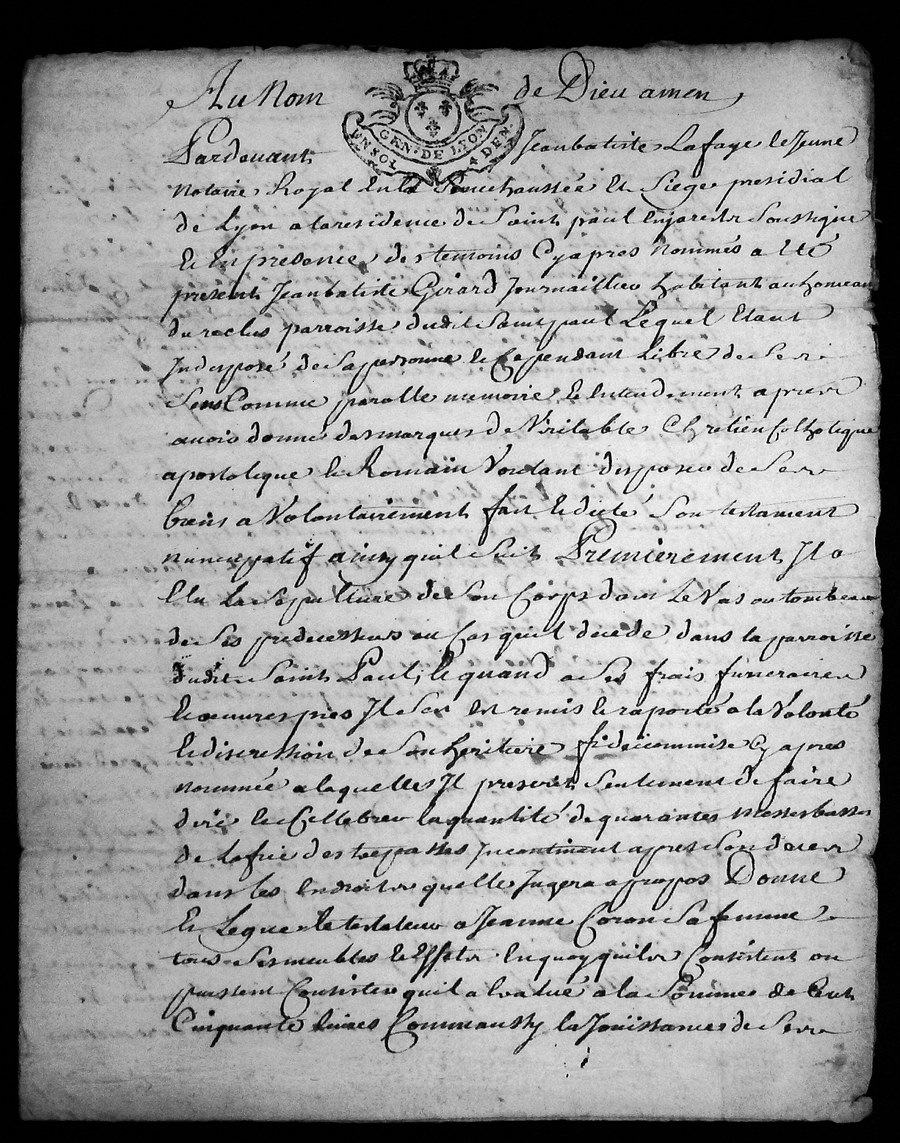 Au Nom de Dieu amen,
GEN. DE LYON
UN SOL 4 DEN.
Pardevant Jeanbatiste Lafaye le Jeune
Notaire Royal En la Senechaussée Et Siege presidial
de Lyon a la residence de Saint paul Enjarest Soussigné
Et En presence des temoins Cyapres Nommés a Eté
present Jeanbatiste Girard Journaillier habitant au hameau
du reclus parroisse dudit Saint paul Lequel Etant
Indisposé de Sa personne Et Cependant Libre de Ses
Sens Comme parolle memoire Et Entendement apres
avoir donné des marques de Veritable Chretien Catholique
apostolique Et Romain Voulant disposer de Ses
biens a Volontairement fait Et dicté Son testament
nuncupatif ainsy quil Suit Premierement Il a
Elu la Sepulture de Son Corps dans Le Vas ou tombeau
de Ses predecesseurs au Cas quil decede dans la parroisse
dudit Saint Paul, Et quand a Ses frais funeraires
Et oeuvres pies Il Sen Est remis Et raporté a la Volonté
Et discression de Son heritiere fideicommise Cy apres
nommée a laquelles Il prescrit Seulement de faire
dire Et Cellebrer la quantité de quarantes Messes basses
de trepasses Incontinent apres Son deces
dans les Endroits quelle Jugera a propos Donne
Et Legue le testateur a Jeanne Coron Sa femme
tous Ses meubles Et Effets En quoy quils Consistent ou
puissent Consister quil a Evalué a la Sommes de Cent
Cinquante livres Comme aussy la Jouissances de Ses